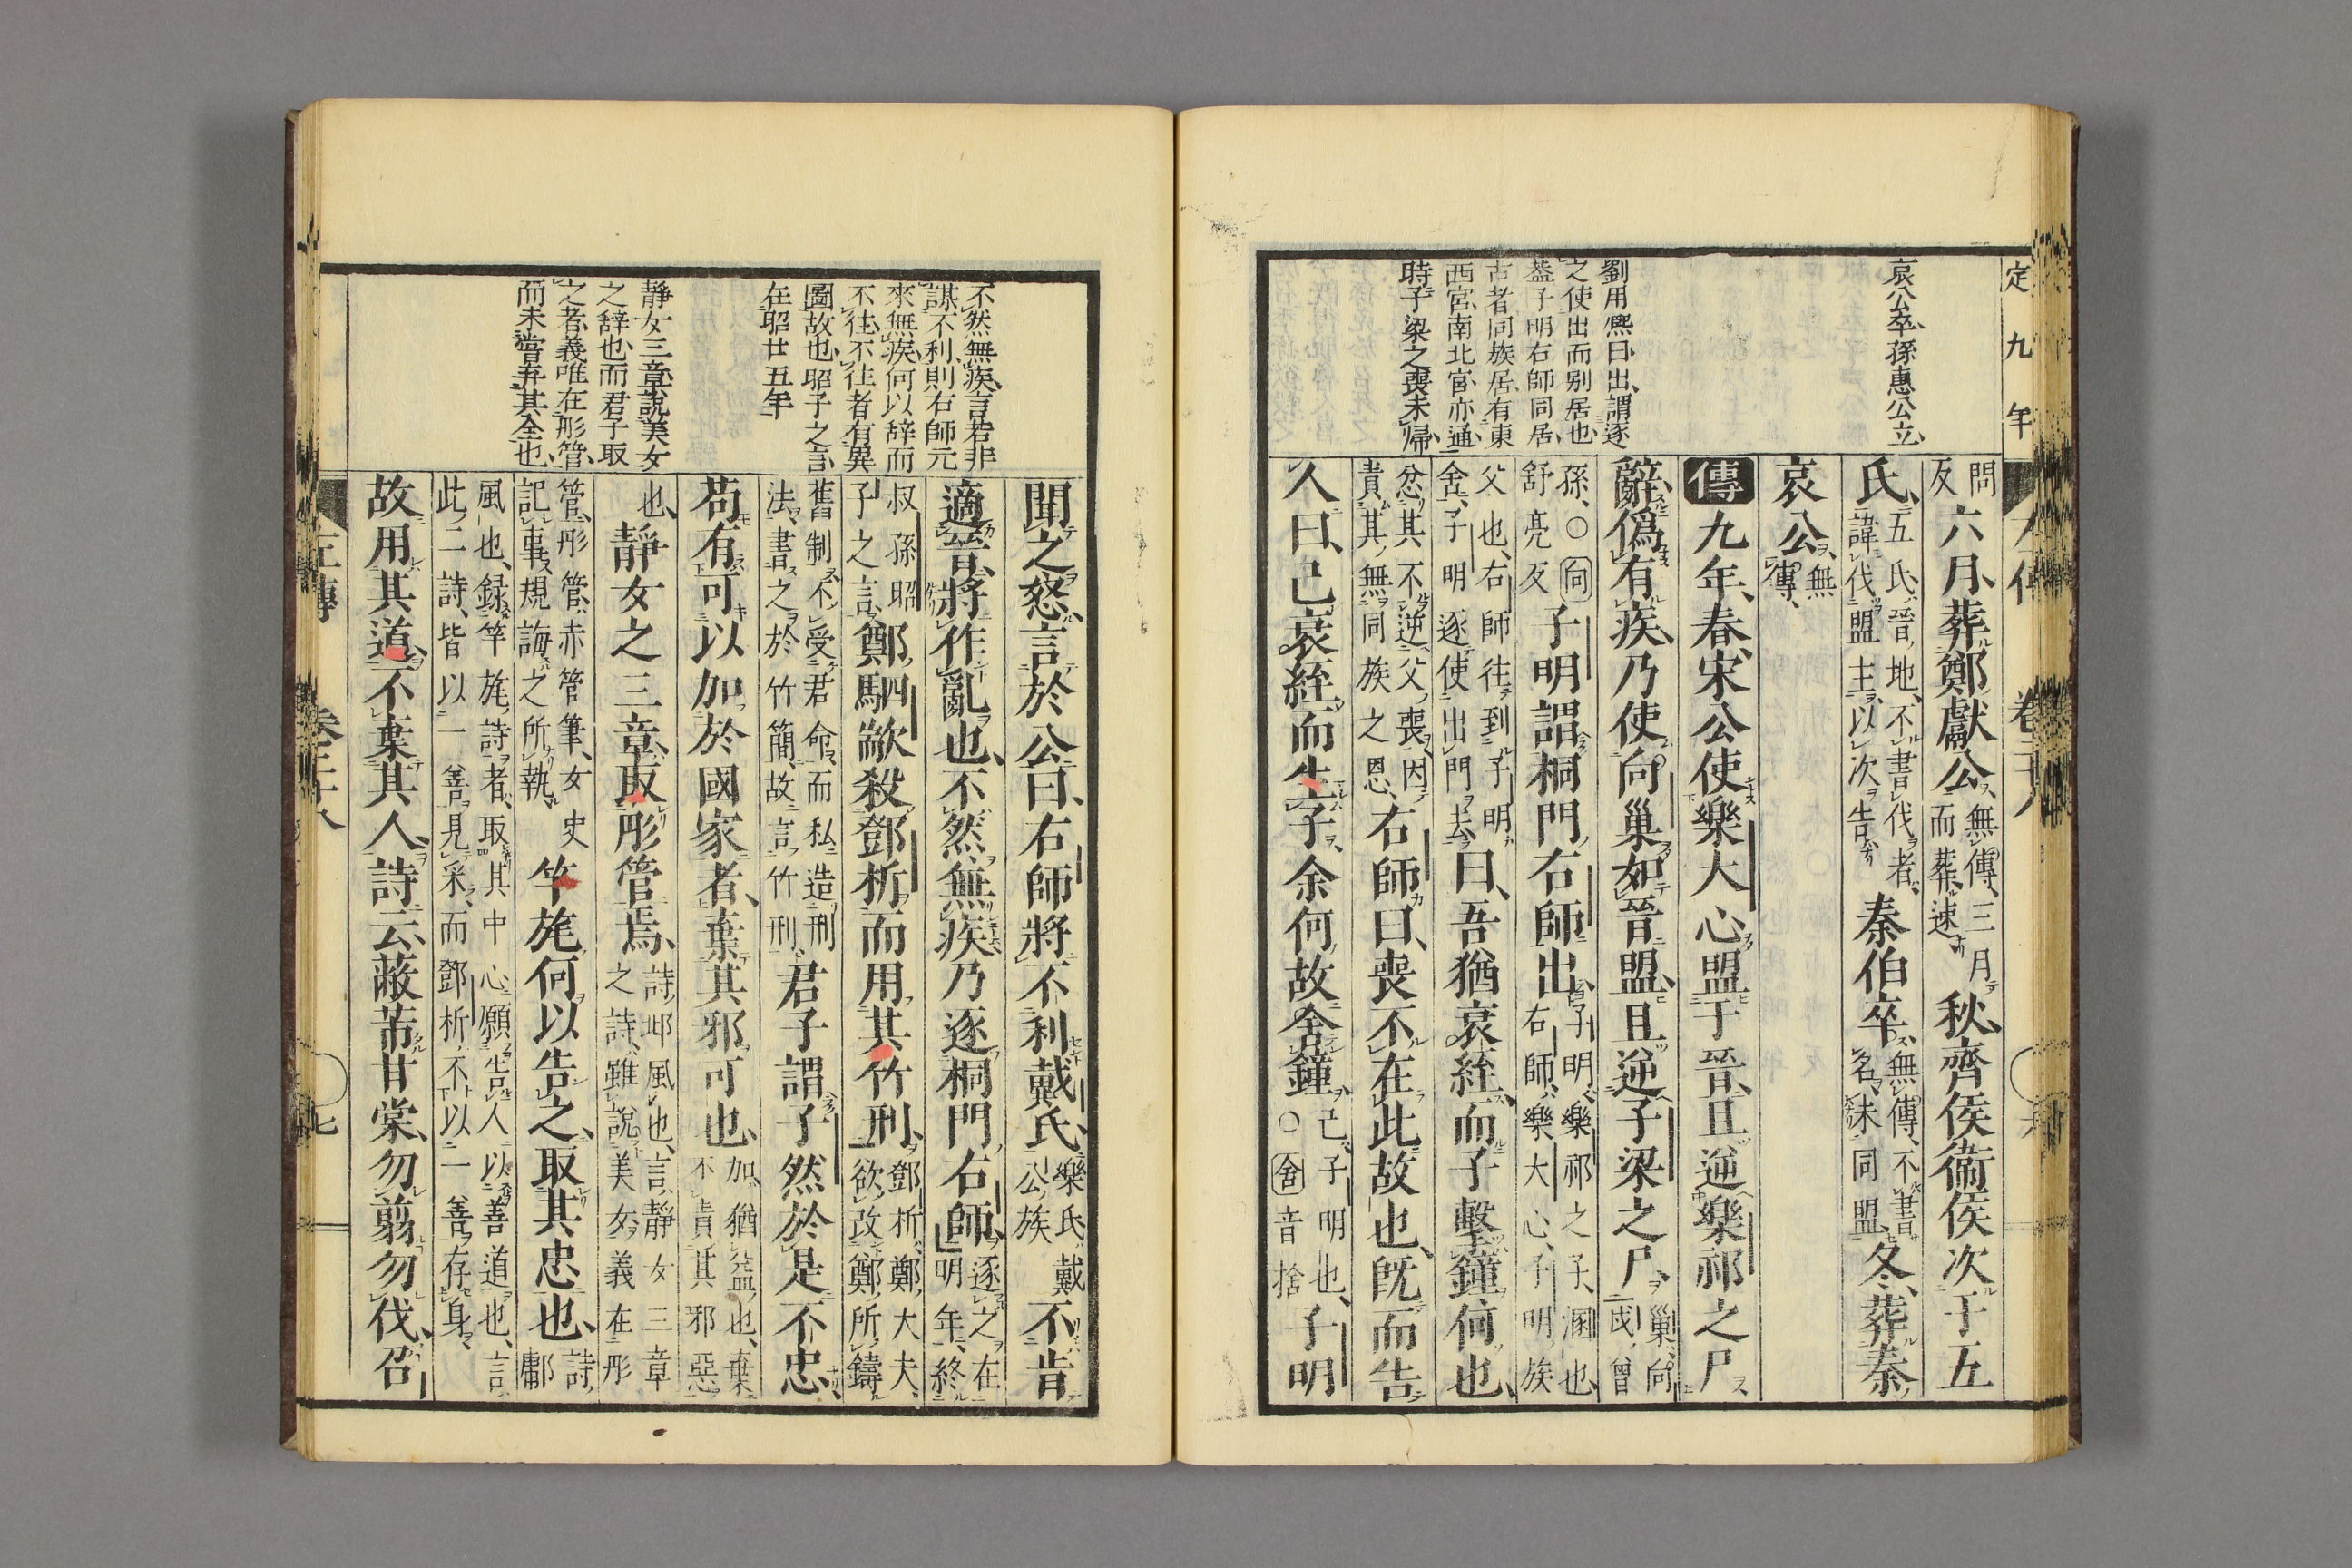 定九年
哀公卒孫惠公立
劉用熈曰出謂逐
之使出而別居也
蓋子明右師同居
古者同族居有東
西宮南北宮亦通
時子梁之喪未歸
問反六月葬鄭獻公無傳三月而葬速秋齊侯衞侯次于五
氏五氏晉地不書伐者諱伐盟主以次告秦伯卒無傳不書名未同盟冬葬秦
哀公無傳
傳九年春宋公使樂大心盟于晉且逆樂祁之尸
辭僞有疾乃使向巢如晉盟且逆子梁之尸巢向戌曾
孫○向舒亮反子明謂桐門右師出子明樂祁之子溷也右師樂大心子明族
父也右師往到子明舍子明逐使出門去曰吾猶衰絰而子擊鐘何也
忿其不逆父喪因責其無同族之恩右師曰喪不在此故也旣而告
人曰己衰絰而生子余何故舍鐘己子明也○舍音捨子明
不然無疾言若非
謀不利則右師元
來無疾何以辞而
不往不往者有異
圖故也昭子之言
在昭廿五年
靜女三章說美女
之辞也而君子取
之者義唯在彤管
而未嘗弃其全也
聞之怒言於公曰右師將不利戴氏樂氏戴公族不肯
適晉將作亂也不然無疾乃逐桐門右師逐之在明年終
叔孫昭子之言鄭駟歂殺鄧析而用其竹刑鄧析鄭大夫欲改鄭所鑄
舊制不受君命而私造刑法書之於竹簡故言竹刑君子謂子然於是不忠
苟有可以加於國家者棄其邪可也加猶益也棄不責其邪惡
也靜女之三章取彤管焉詩邶風也言靜女三章之詩雖說美女義在彤
管彤管赤管筆女史記事規誨之所執竿旄何以告之取其忠也詩鄘
風也録竿旄詩者取其中心願告人以善道也言此二詩皆以一善見采而鄧析不以一善存身
故用其道不棄其人詩云蔽芾甘棠勿翦勿伐召
左傳 卷二十八 七